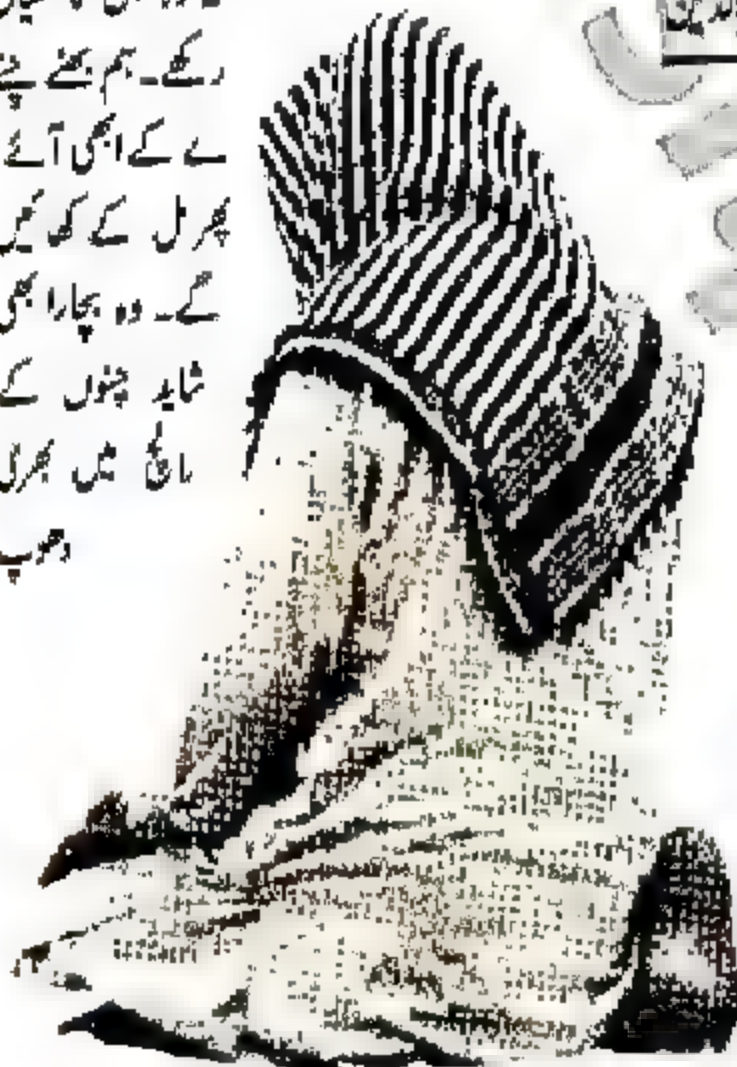 رکھے۔ ہم بھنے چنے
لے کے ابھی آئے
پھر مل کے کھائیں
گے۔ وہ بچارا بھی
شاید چنوں کے
میں بھری
دھوپ